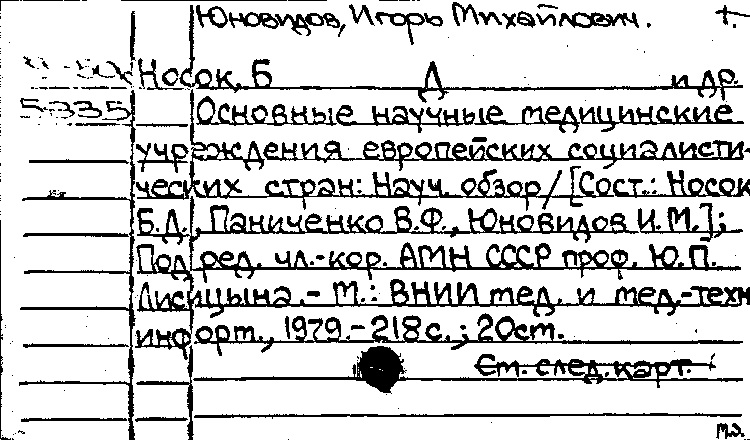 Юновидов, Игорь Михайлович. т.
Носок, Б Д и др.
5335 Основные научные медицинские
учреждения европейских социалисти-
ческих стран: Науч. обзор / [Сост.: Носок
Б.Д., Паниченко В.Ф., Юновидов И.М.];
Под ред. чл.-кор. АМН СССР проф. Ю.П.
Лисицына. - М.: ВНИИ мед. и мед.-техн
информ., 1979. - 218 с.; 20 см.
См. след. карт.
м.э.